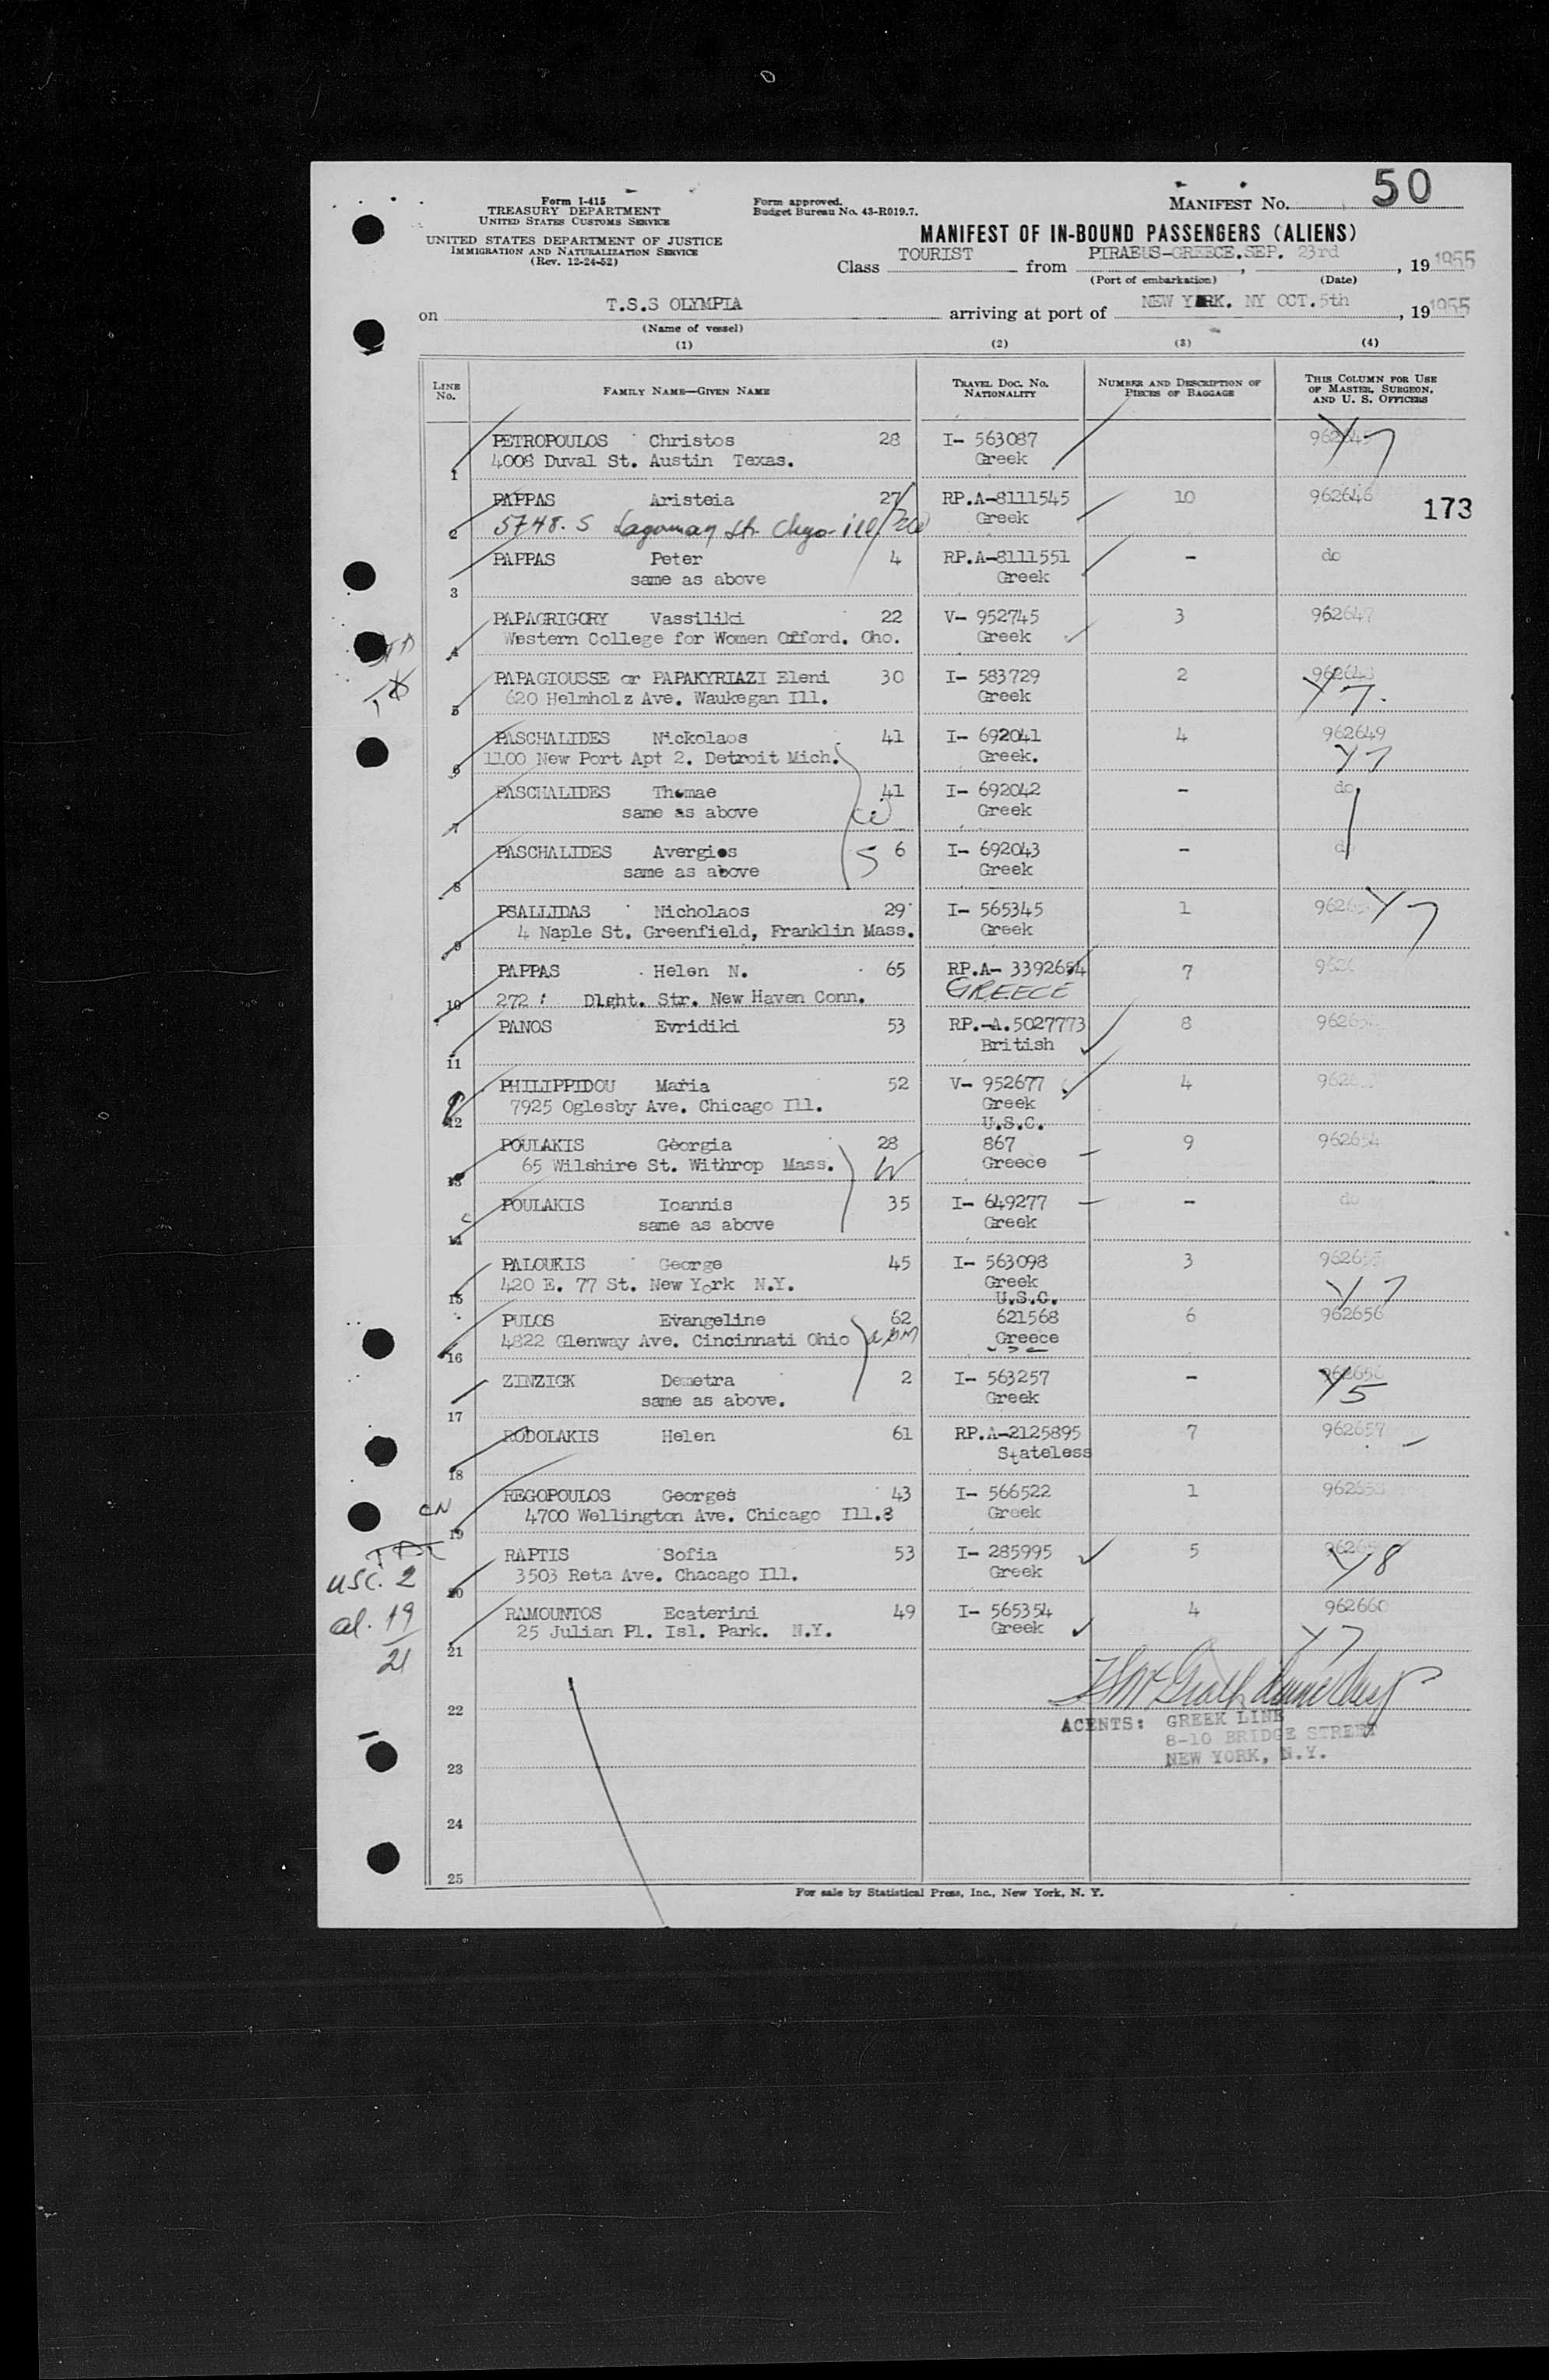 50
Form I-415
TREASURY DEPARTMENT
UNITED STATES CUSTOMS SERVICE
UNITED STATES DEPARTMENT OF JUSTICE
IMMIGRATION AND NATURALIZATION SERVICE
(Rev. 12-24-52)
Form approved.
Budget Bureau No. 43-R019.7.
MANIFEST No.
MANIFEST OF IN-BOUND PASSENGERS (ALIENS)
Class TOURIST from PIRAEUS-GREECE.SEP. 23rd, 19 1955
(Port of embarkation) (Date)
on T.S.S OLYMPIA arriving at port of NEW YORK. NY OCT.5th, 19 1955
(Name of vessel)
(1) (2) (3) (4)
LINE No. FAMILY NAME—GIVEN NAME TRAVEL DOC. No. NATIONALITY NUMBER AND DESCRIPTION OF PIECES OF BAGGAGE THIS COLUMN FOR USE OF MASTER, SURGEON, AND U. S. OFFICERS
PETROPOULOS Christos 28 I- 563087
1 4008 Duval St. Austin Texas. Greek Y7
PAPPAS Aristeia 27 RP.A-8111545 10 962646
173
2 5748. S St. Greek
PAPPAS Peter 4 RP.A-8111551 - do
3 same as above Greek
PAPAGRIGORY Vassiliki 22 V- 952745 3 962647
4 Western College for Women Offord. Oho. Greek
PAPAGIOUSSE or PAPAKYRIAZI Eleni 30 I- 583729 2
5 620 Helmholz Ave. Waukegan Ill. Greek Y7.
PASCHALIDES Nickolaos 41 I- 692041 4 962649
6 1100 New Port Apt 2. Detroit Mich. Greek. Y7
PASCHALIDES Thomae 41 I- 692042 - do
7 same as above Greek
PASCHALIDES Avergios 6 I- 692043 -
8 same as above 5 Greek
PSALLIDAS Nicholaos 29 I- 565345 1 Y7
9 4 Naple St. Greenfield, Franklin Mass. Greek
PAPPAS Helen N. 65 RP.A- 3392654 7
10 272 Dlght. Str. New Haven Conn. GREECE
PANOS Evridiki 53 RP.-A.5027773 8
11 British
PHILIPPIDOU Maria 52 V- 952677 4
12 7925 Oglesby Ave. Chicago Ill. Greek
U.S.C.
POULAKIS Georgia 28 867 9 962654
13 65 Wilshire St. Withrop Mass. W Greece
POULAKIS Ioannis 35 I- 649277 - do
14 same as above Greek
PALOUKIS George 45 I- 563098 3
15 420 E. 77 St. New York N.Y. Greek Y7
U.S.C.
PULOS Evangeline 62 621568 6 962656
16 4822 Glenway Ave. Cincinnati Ohio Greece
ZINZICK Demetra 2 I- 563257 - Y5
17 same as above. Greek
RODOLAKIS Helen 61 RP.A-2125895 7 962657
18 Stateless
REGOPOULOS Georges 43 I- 566522 1
CN
19 4700 Wellington Ave. Chicago Ill.8 Greek
RAPTIS Sofia 53 I- 285995 5 Y8
20 3503 Reta Ave. Chacago Ill. Greek
usc. 2
RAMOUNTOS Ecaterini 49 I- 565354 4 962660
al. 19
21 25 Julian Pl. Isl. Park. N.Y. Greek Y7
21
22
AGENTS: GREEK LINE
8-10 BRIDGE STREET
NEW YORK, N.Y.
23
24
25
For sale by Statistical Press, Inc., New York, N. Y.